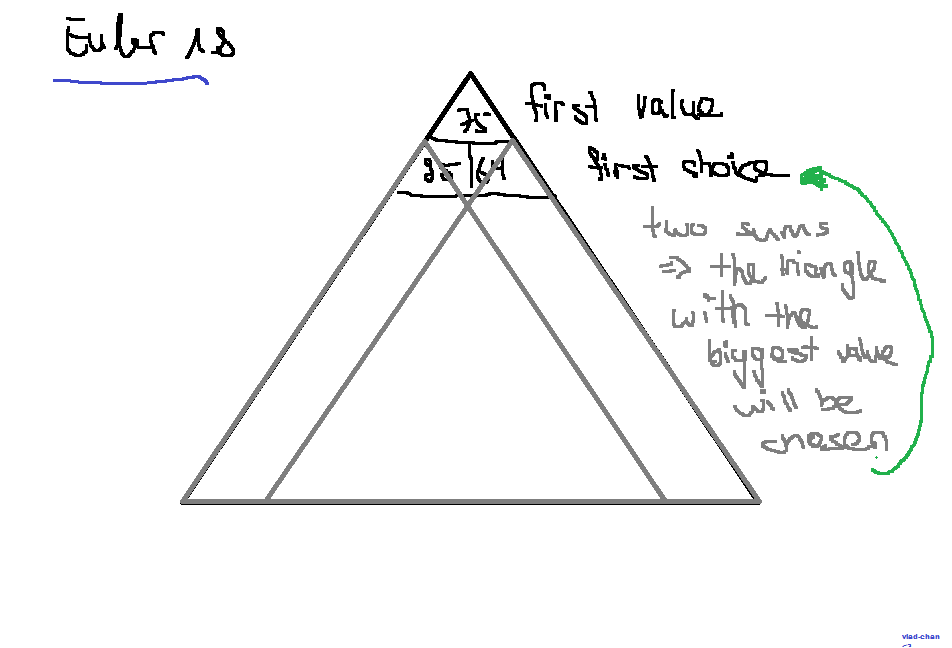 Euler 18
75
first value
95 64
first choice
two sums
⇒ the triangle
with the
biggest value
will be
chosen
vlad-chan
<3